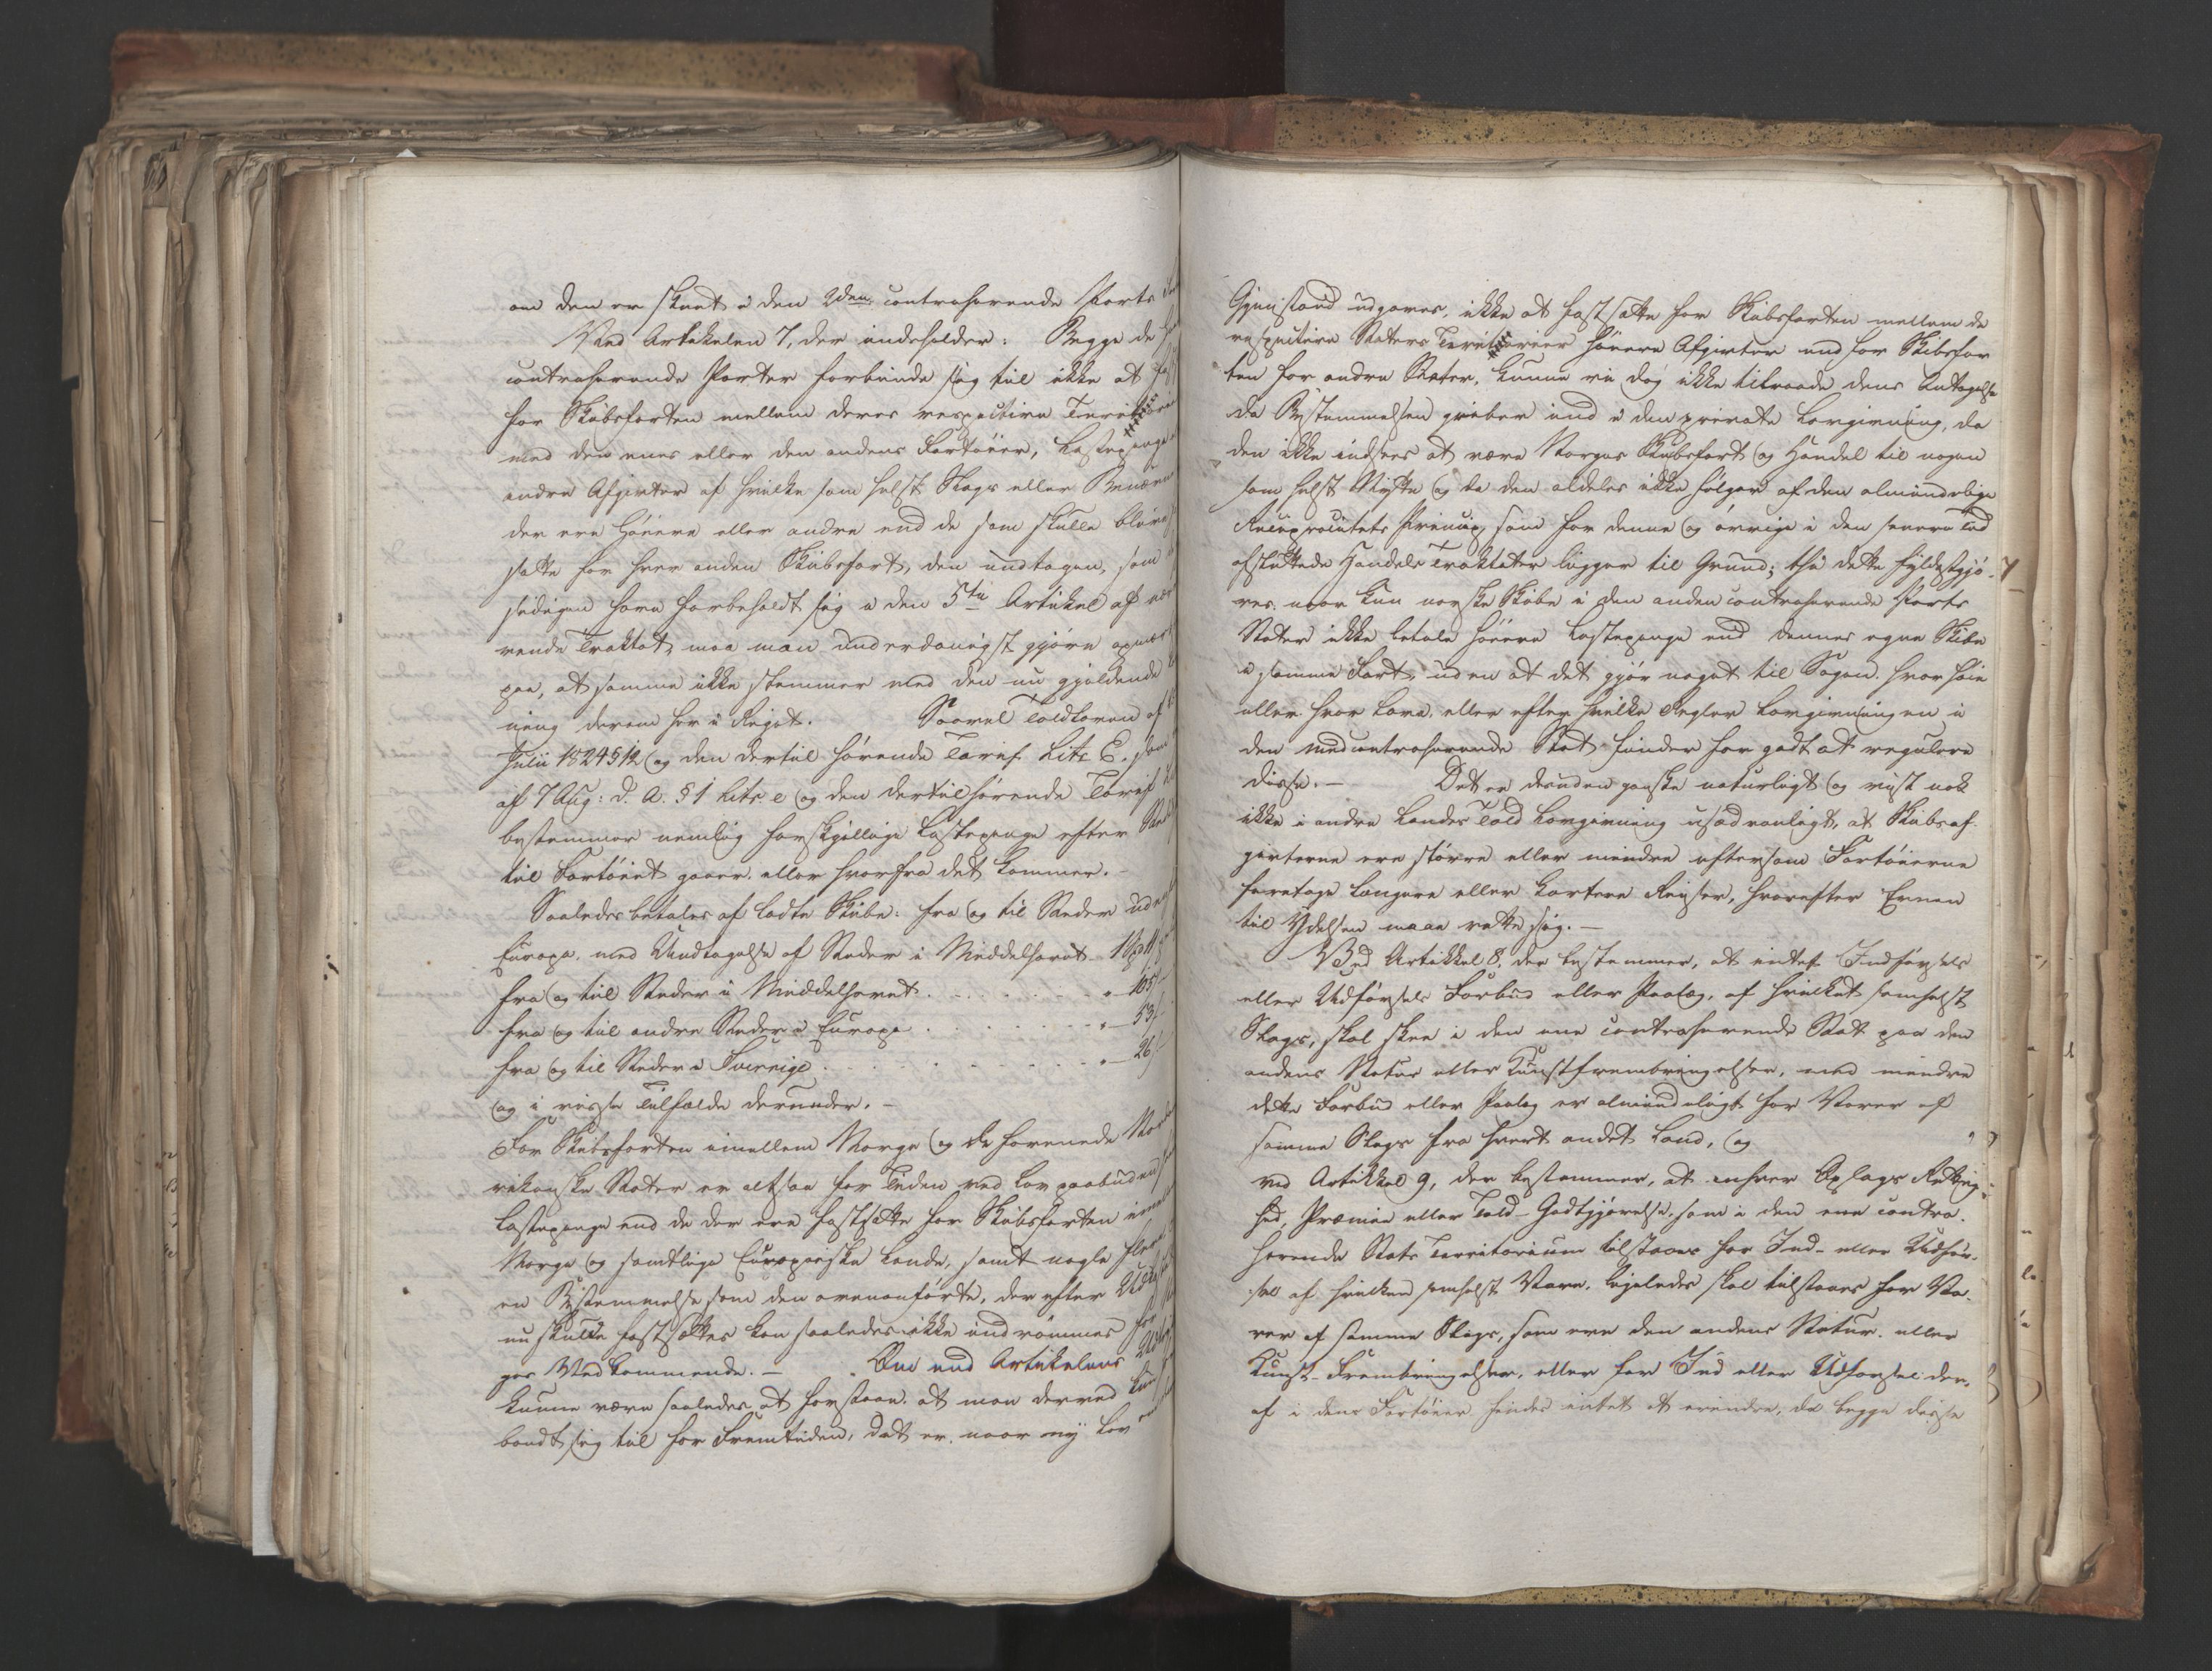 om den er skeet i den 2den contraherende Parts
Ved Artikelen 7, der indeholder: Begge de
contraherende Parter forbinde sig til ikke at
for Skibsfarten mellem deres respective
med den enes eller den andens Fartøier, Lastepenge
andre Afgivter af hvilke som helst Slags eller
der ere høiere eller andre end de som skulle blive
satte for hver anden Skibsfart, den undtagen, som
sidigen have forbeholdt sig i den 5te Artikel af
rende Traktat, maa man underdanigst gjøre
paa, at samme ikke stemmer med den nu gjældende
ning derom her i Riget. Saavel Toldloven af
Julii 1824 § 12 og den dertil hørende Tarif Litr E. som
af 7 Aug: d. A. § 1 Litr. e og den dertilhørende Tarif
bestemmer nemlig forskjellige Lastepenge efter
til Fartøiet gaaer. eller hvorfra det kommer.-
Saaledes betales af ladte Skibe: fra og til Steder
Europa. med Undtagelse af Steder i Middelhavet
fra og til Steder i Middelhavet . . . . . . . 105
fra og til andre Steder i Europa . . . . . . . 53
fra og til Steder i Sverrige . . . . . . . 26
og i visse Tilfælde derunder.-
For Skibsfarten imellem Norge og de forenede
rikanske Stater er altsaa for Tiden ved Lov paabuden
Lastepenge end de der ere fastsatte for Skibsfarten
Norge og samtlige Europæiske Lande, samt nogle
en Bestemmelse som den ovenanførte, der efter
nu skulde fastsættes kan saaledes ikke indrømmes
ges Vedkommende.- Om end Artikelens
kunne være saaledes at forstaae. at man derved kun
bandt sig til for Fremtiden, det er. naar ny Lov
Gjenstand udgaves, ikke at fastsætte for Skibsfarten mellem de
respective Staters Territorier høiere Afgivter end for Skibsfar
ten for andre Stater, kunne vi dog ikke tilraade dens Antagelse
da Bestemmelsen griber ind i den private Lovgivning, da
den ikke indsees at være Norges Skibsfart og Handel til nogen
som helst Nytte og da den aldeles ikke følger af den almindelige
Reciprocitets Princip, som for denne og øvrige i den senere Tid
afsluttede Handels Traktater ligger til Grund; thi dette fyldestgjø-
res. naar kun norske Skibe i den anden contraherende Parts
Stater ikke betale høiere Lastepenge end dennes egne Skibe
i samme Fart, uden at det gjør noget til Sagen. hvor høie
eller hvor lave, eller efter hvilke Regler Lovgivningen i
den medcontraherende Stat finder for godt at regulere
disse.- Det er desuden ganske naturligt og vist nok
ikke i andre Landes Told Lovgivning usædvanligt, at Skibsaf-
givterne ere større eller mindre eftersom Fartøierne
foretage længere eller kortere Reiser, hvorefter Evnen
til Ydelsen maae rette sig.-
Ved Artikkel 8. der bestemmer, at intet Indførsels
eller Udførsels Forbud eller Paalæg, af hvilket somhelst
Slags, skal skee i den ene contraherende Stat paa den
andens Natur eller Kunstfrembringelser, med mindre
dette Forbud eller Paalæg er almindeligt for Varer af
samme Slags fra hvert andet Land, og
ved Artikkel 9, der bestemmer, at enhver Oplags Rettig-
hed, Præmie eller Told-Godtgjørelse, som i den ene contra-
herende Stats Territorium tilstaaes for Ind- eller Udfør-
sel af hvilken somhelst Vare, ligeledes skal tilstaaes for Va-
rer af samme Slags, som ere den andens Natur. eller
Kunst-Frembringelser, eller for Ind eller Udførsel der-
af i dens Fartøier findes intet at erindre, da begge disse